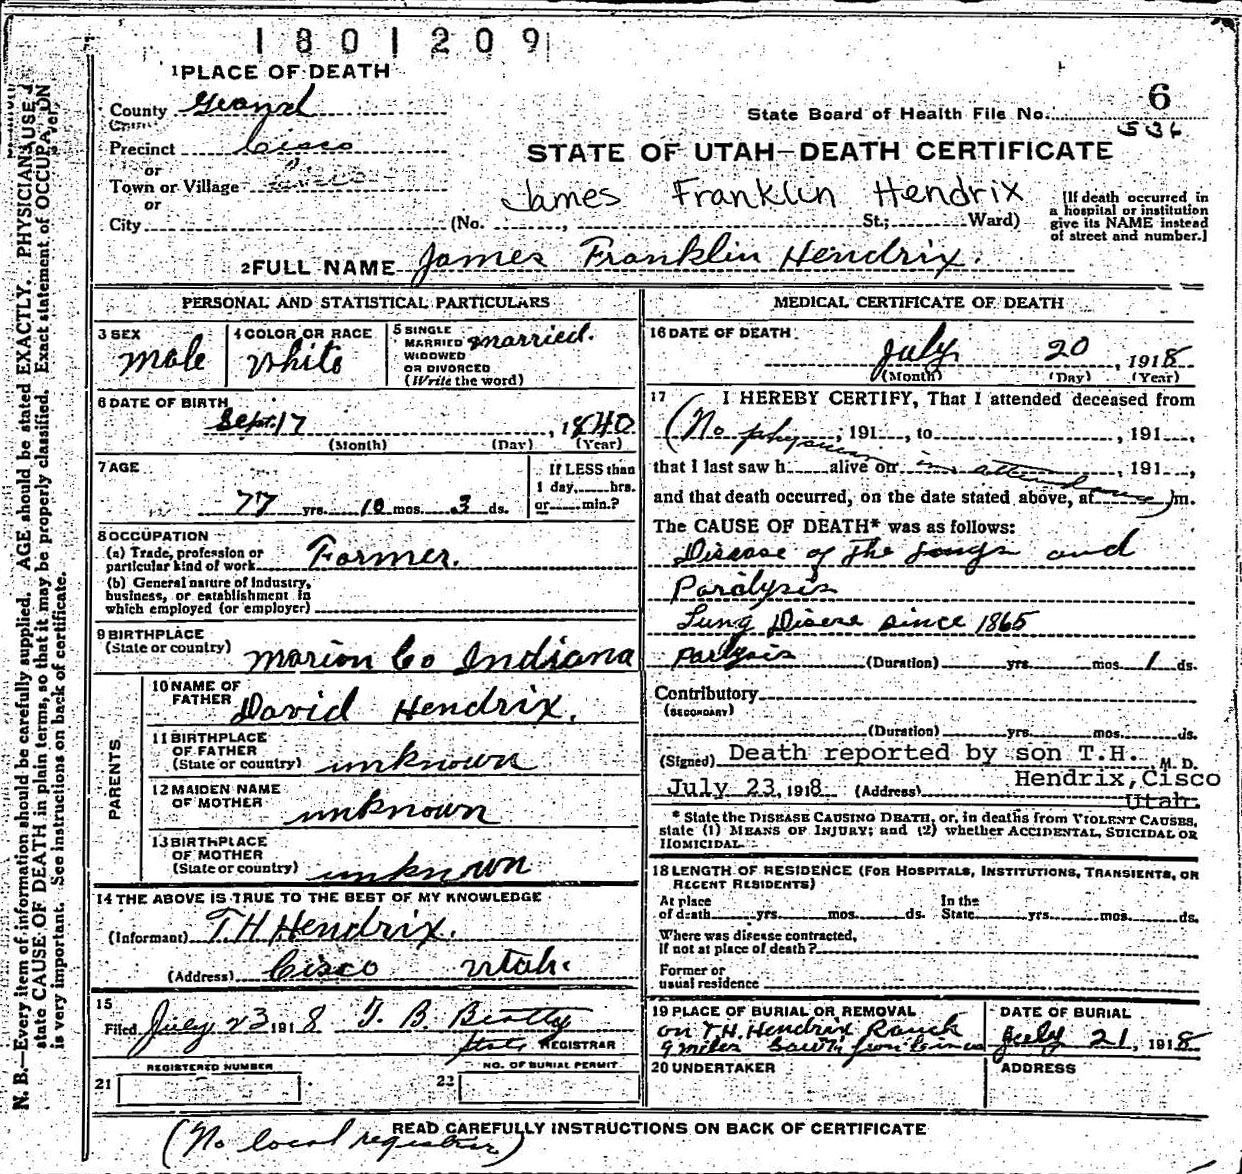 1801209
1 PLACE OF DEATH
County Grand
State Board of Health File No. 6
536
Precinct Cisco
or
STATE OF UTAH—DEATH CERTIFICATE
Town or Village Cisco
or
James Franklin Hendrix
City (No. , St.; Ward)
[If death occurred in
a hospital or institution
give its NAME instead
of street and number.]
2 FULL NAME James Franklin Hendrix.
PERSONAL AND STATISTICAL PARTICULARS
3 SEX
Male
4 COLOR OR RACE
White
5 SINGLE
MARRIED
WIDOWED
OR DIVORCED
(Write the word)
married.
6 DATE OF BIRTH
Sept. 17, 1840
(Month) (Day) (Year)
7 AGE
77 yrs. 10 mos. 3 ds.
If LESS than
1 day, hrs.
or min.?
8 OCCUPATION
(a) Trade, profession or
particular kind of work Farmer.
(b) General nature of industry,
business, or establishment in
which employed (or employer)
9 BIRTHPLACE
(State or country) Marion Co Indiana
PARENTS
10 NAME OF
FATHER David Hendrix.
11 BIRTHPLACE
OF FATHER
(State or country) unknown
12 MAIDEN NAME
OF MOTHER unknown
13 BIRTHPLACE
OF MOTHER
(State or country) unknown
14 THE ABOVE IS TRUE TO THE BEST OF MY KNOWLEDGE
(Informant) T H Hendrix.
(Address) Cisco Utah.
15
Filed July 23 1918 T. B. Beatty
State REGISTRAR
REGISTERED NUMBER
21
NO. OF BURIAL PERMIT
22
MEDICAL CERTIFICATE OF DEATH
16 DATE OF DEATH
July 20, 1918
(Month) (Day) (Year)
17 I HEREBY CERTIFY, That I attended deceased from
(No physician , 191 , to , 191 ,
that I last saw h alive on in attendance , 191 ,
and that death occurred, on the date stated above, at )m.
The CAUSE OF DEATH* was as follows:
Disease of the Lungs and
Paralysis
Lung Disese since 1865
Parlysis (Duration) yrs. mos. 1 ds.
Contributory
(SECONDARY)
(Duration) yrs. mos. ds.
(Signed) Death reported by son T.H. M. D.
July 23, 1918 (Address) Hendrix, Cisco
Utah.
* State the DISEASE CAUSING DEATH, or, in deaths from VIOLENT CAUSES,
state (1) MEANS OF INJURY; and (2) whether ACCIDENTAL, SUICIDAL OR
HOMICIDAL.
18 LENGTH OF RESIDENCE (FOR HOSPITALS, INSTITUTIONS, TRANSIENTS, OR
RECENT RESIDENTS)
At place
of death yrs. mos. ds.
In the
State yrs. mos. ds.
Where was disease contracted,
if not at place of death?
Former or
usual residence
19 PLACE OF BURIAL OR REMOVAL
on T.H. Hendrix Ranch
9 miles South from Cisco
DATE OF BURIAL
July 21, 1918
20 UNDERTAKER
ADDRESS
READ CAREFULLY INSTRUCTIONS ON BACK OF CERTIFICATE
(No local registrar)
N. B.—Every item of information should be carefully supplied. AGE should be stated EXACTLY. PHYSICIANS
state CAUSE OF DEATH in plain terms, so that it may be properly classified. Exact statement of OCCUPATION
is very important. See instructions on back of certificate.